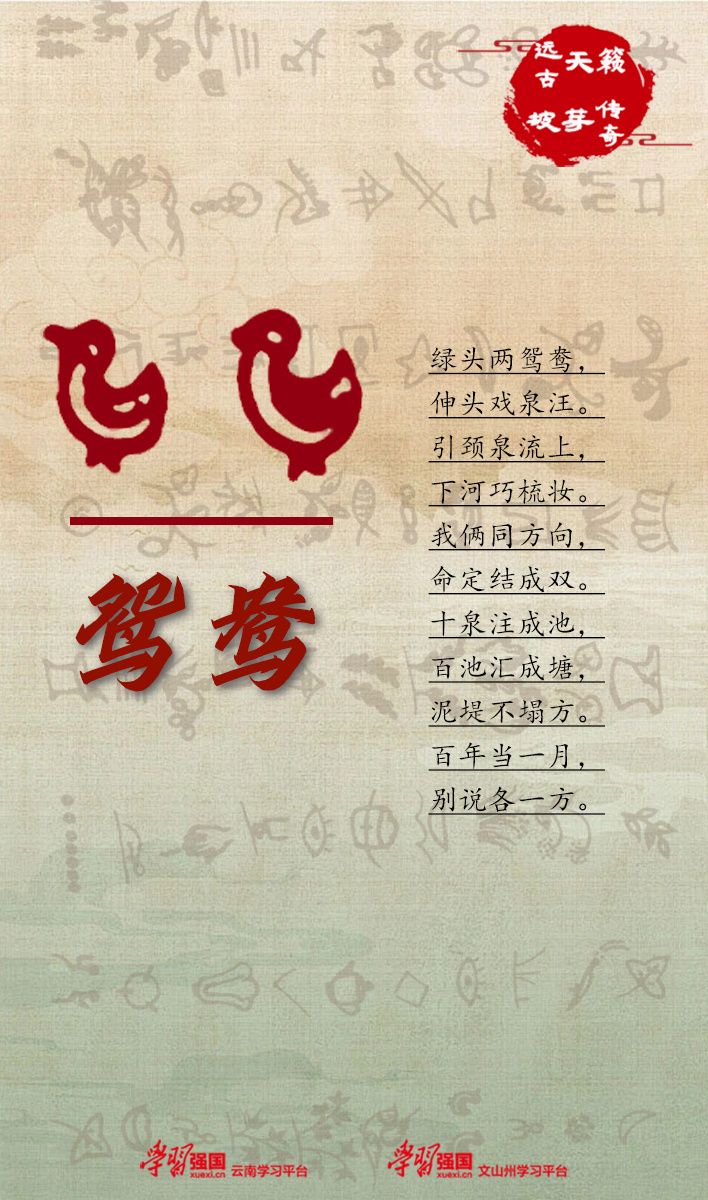 远古天籁
坡芽传奇
绿头两鸳鸯，
伸头戏泉汪。
引颈泉流上，
下河巧梳妆。
我俩同方向，
命定结成双。
十泉注成池，
百池汇成塘，
泥堤不塌方。
百年当一月，
别说各一方。
鸳鸯
学习强国
xuexi.cn
云南学习平台
学习强国
xuexi.cn
文山州学习平台